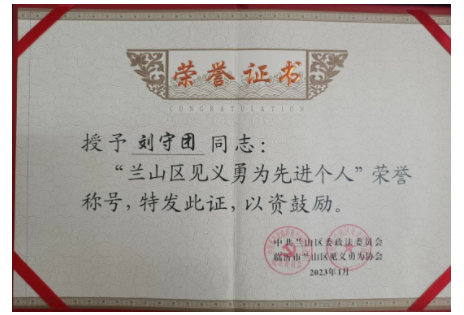 荣誉证书
CONGRATULATION
授予 刘守团 同志：
“兰山区见义勇为先进个人”荣誉
称号，特发此证，以资鼓励。
中共兰山区委政法委员会
临沂市兰山区见义勇为协会
2023年1月